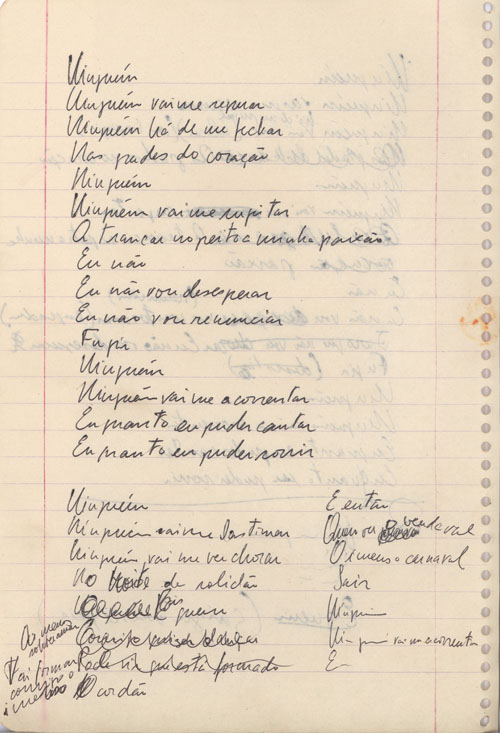 Ninguém
Ninguém vai me segurar
Ninguém há de me fechar
Nas grades do coração
Ninguém
Ninguém vai me sujeitar
A trancar no peito a minha paixão
Eu não
Eu não vou desesperar
Eu não vou renunciar
Fugir
Ninguém
Ninguém vai me acorrentar
Enquanto eu puder cantar
Enquanto eu puder sorrir
Ninguém
Ninguém vai me
Ninguém vai me ver chorar
de solidão
está formado
Cordão
E então
Quero ver vendaval
O imenso carnaval
Sair
Ninguém
Ninguém vai me acorrentar
E
Vai formar
comigo o
imenso